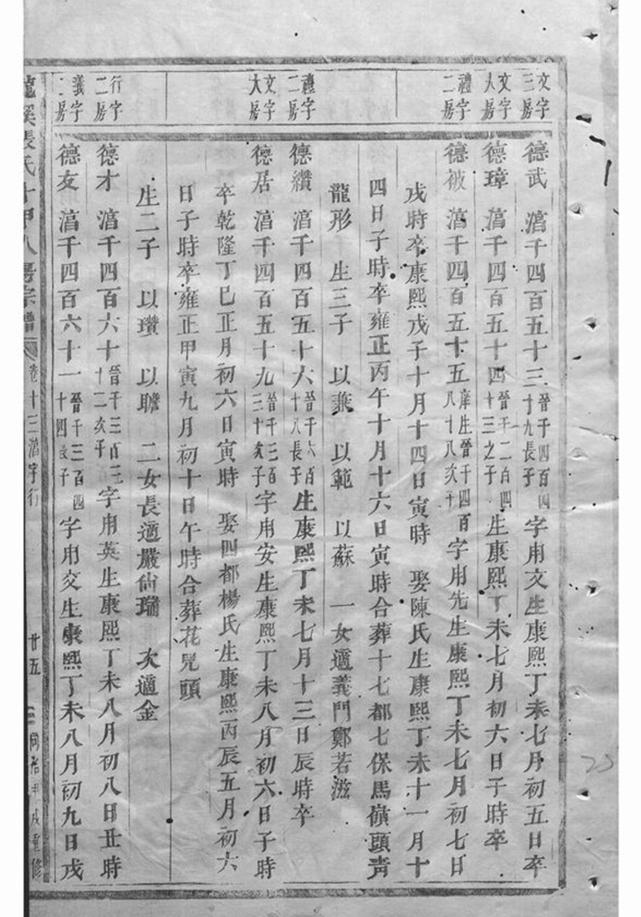 文字三房
德武 濸千四百五十三 晉千四百四十九長子 字用文生康熙丁未七月初五日卒
文字人房
德璋 濸千四百五十四 晉千二百四十三之子 生康熙丁未七月初六日子時卒
禮字二房
德被 濸千四百五十五 庠生晉千四百八十八次子 字用先生康熙丁未七月初七日
戌時卒康熙戊子十月十四日寅時 娶陳氏生康熙丁未十一月十
四日子時卒雍正丙午十月十六日寅時合葬十七都七保馬嶺頭青
龍形 生三子 以兼 以範 以蘇 一女適義門鄭若滋
禮字二房
德纘 濸千四百五十六 晉千六百十八長子 生康熙丁未七月十三日辰時卒
文字大房
德居 濸千四百五十九 晉千三百三十次子 字用安生康熙丁未八月初六日子時
卒乾隆丁巳正月初六日寅時 娶四都楊氏生康熙丙辰五月初六
日子時卒雍正甲寅九月初十日午時合葬花凫頭
生二子 以瓚 以瞻 二女長適嚴仙瑞 次適金
行字二房
德才 濸千四百六十 晉千三百三十二次子 字用英生康熙丁未八月初八日丑時
義字二房
德友 濸千四百六十一 晉千三百四十四長子 字用交生康熙丁未八月初九日戌
龍溪張氏十甲八房宗譜 卷十三濸字行 廿五 同治甲戌重修